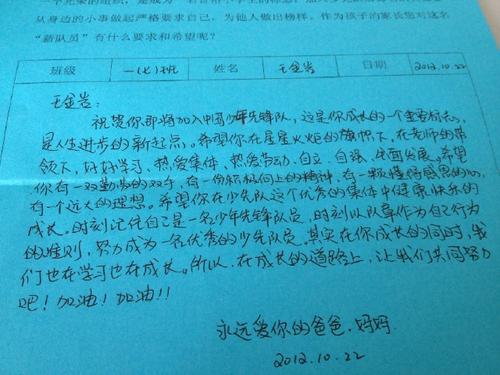 从身边的小事做起严格要求自己，为他人做出榜样。作为孩子的家长您对这名
“新队员”有什么要求和希望呢？
班级 一(七)班 姓名 王金岩 日期 2012.10.22
王金岩：
祝贺你即将加入中国少年先锋队，这是你成长的一个重要标志，
是人生进步的新起点。希望你在星星火炬的旗帜下，在老师的带
领下，好好学习、热爱集体、热爱劳动、自立、自强、全面发展。希望
你有一双勤劳的双手，有一份积极向上的精神，有一颗懂得感恩的心，
有一个远大的理想。希望你在少先队这个优秀的集体中健康快乐的
成长。时刻记住自己是一名少年先锋队员，时刻以队章作为自己行为
的准则，努力成为一名优秀的少先队员。其实在你成长的同时，我
们也在学习也在成长。所以，在成长的道路上，让我们共同努力
吧！加油！加油！！
永远爱你的爸爸、妈妈
2012.10.22